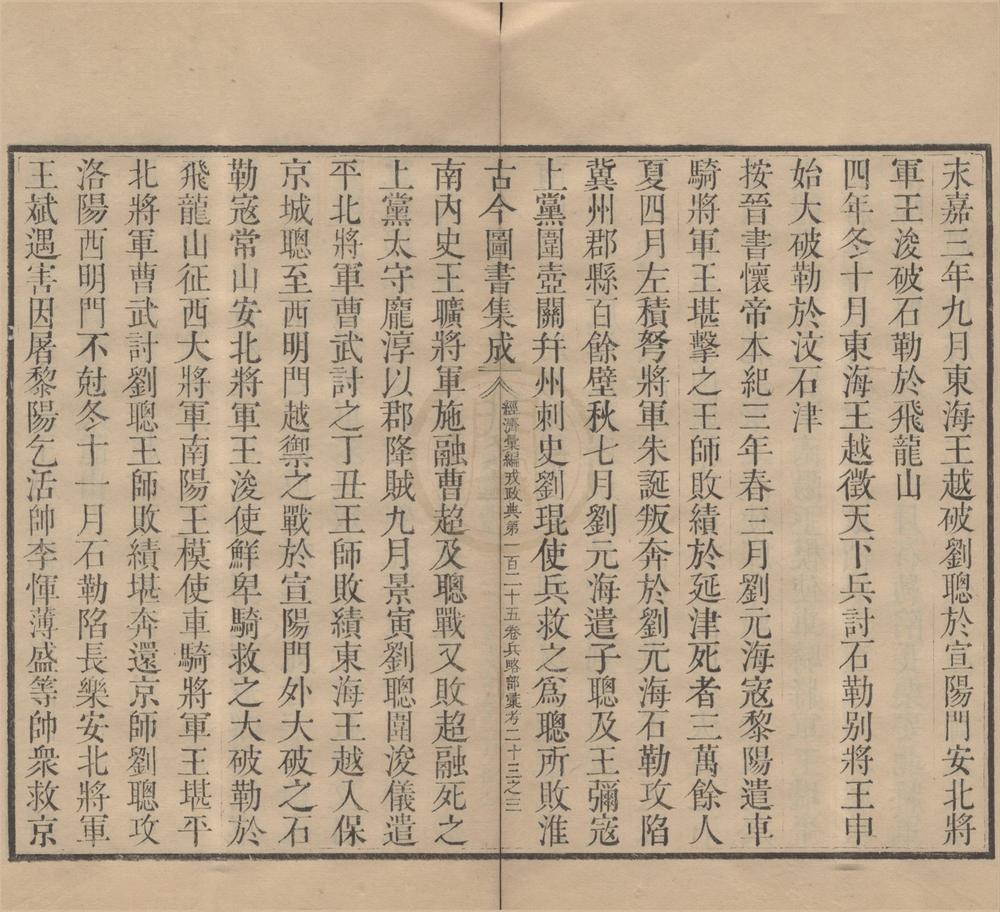 永嘉三年九月東海王越破劉聰於宣陽門安北將
軍王浚破石勒於飛龍山
四年冬十月東海王越徵天下兵討石勒别將王申
始大破勒於汶石津
按晉書懷帝本紀三年春三月劉元海寇黎陽遣車
騎將軍王堪擊之王師敗績於延津死者三萬餘人
夏四月左積弩將軍朱誕叛奔於劉元海石勒攻陷
冀州郡縣百餘壁秋七月劉元海遣子聰及王彌寇
上黨圍壺關幷州刺史劉琨使兵救之爲聰所敗淮
古今圖書集成 經濟彙編戎政典第一百二十五卷兵略部彙考二十三之三
南內史王曠將軍施融曹超及聰戰又敗超融死之
上黨太守龐淳以郡降賊九月景寅劉聰圍浚儀遣
平北將軍曹武討之丁丑王師敗績東海王越入保
京城聰至西明門越禦之戰於宣陽門外大破之石
勒寇常山安北將軍王浚使鮮卑騎救之大破勒於
飛龍山征西大將軍南陽王模使車騎將軍王堪平
北將軍曹武討劉聰王師敗績堪奔還京師劉聰攻
洛陽西明門不尅冬十一月石勒陷長樂安北將軍
王斌遇害因屠黎陽乞活帥李惲薄盛等帥衆救京